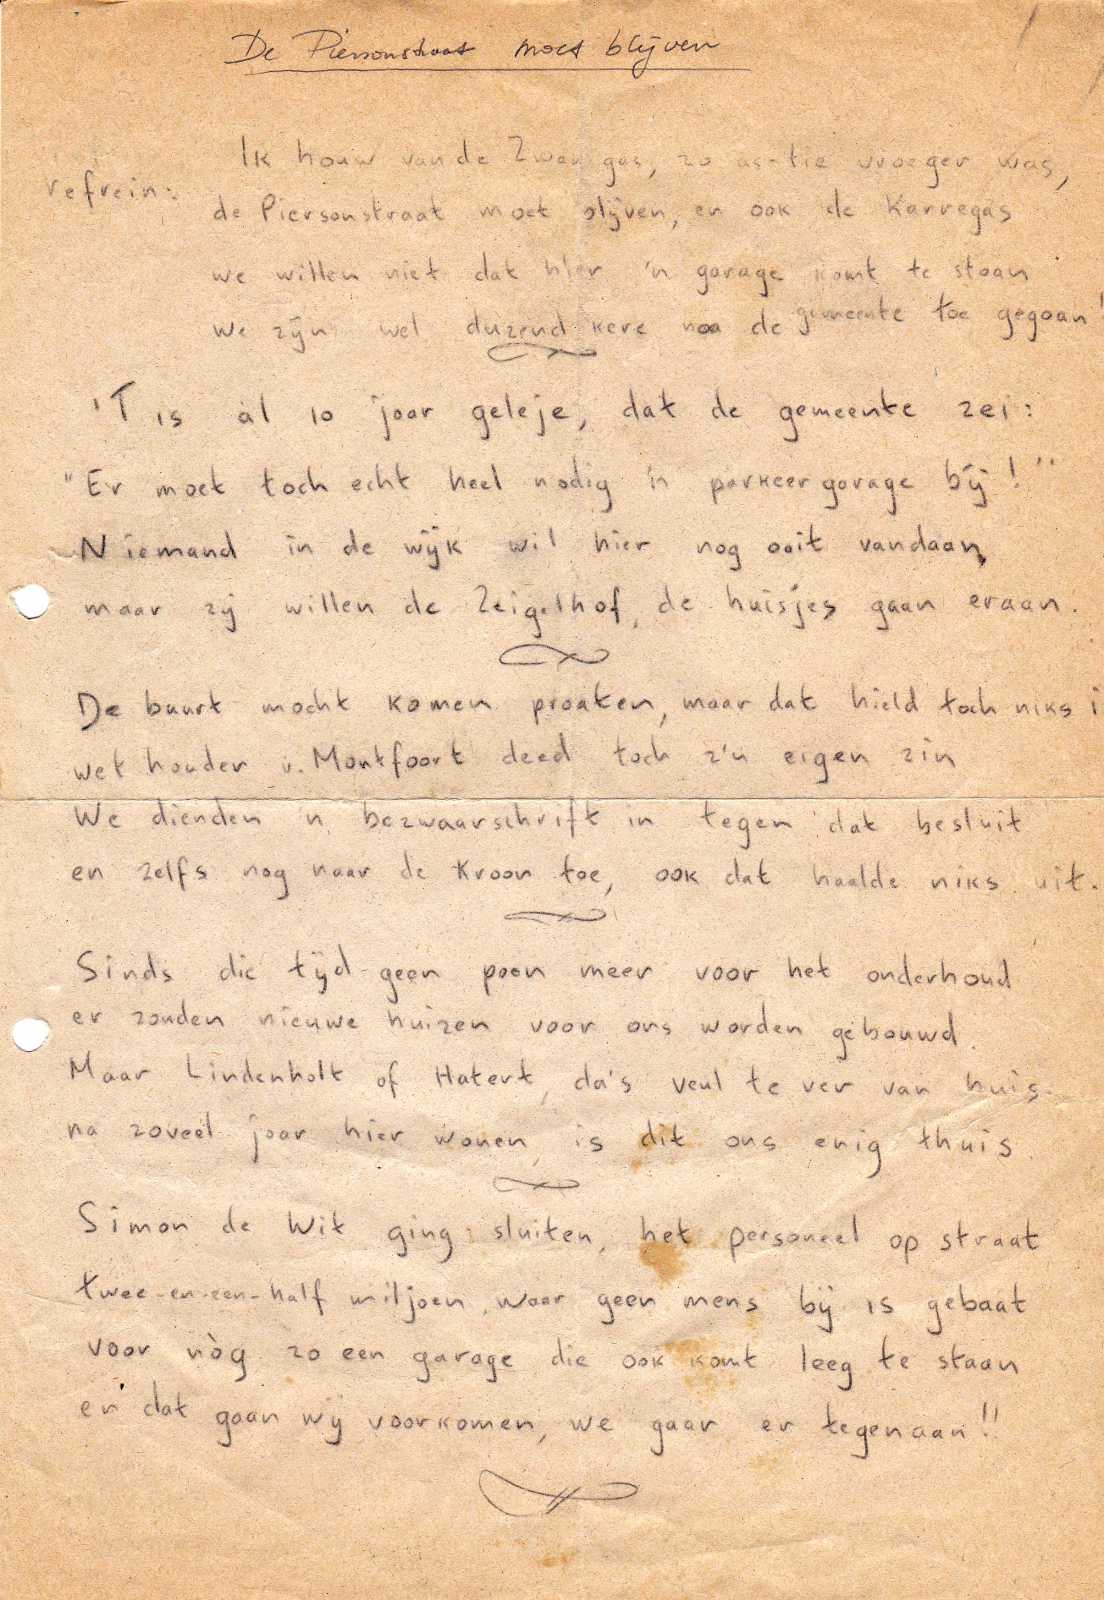 De Piersonstraat moet blijven
refrein:
Ik houw van de Zwanegas, zo as-tie vroeger was,
de Piersonstraat moet blijven, en ook de Karregas
we willen niet dat hier 'n garage komt te staan
we zijn wel duzend kere naa de gemeente toe gegaan!
'T is al 10 jaar geleje, dat de gemeente zei:
"Er moet toch echt heel nodig 'n parkeergarage bij!"
Niemand in de wijk wil hier nog ooit vandaan,
maar zij willen de Zeigelhof, de huisjes gaan eraan.
De buurt mocht komen praaten, maar dat hield toch niks i
wethouder v. Montfoort deed toch z'n eigen zin
We dienden 'n bezwaarschrift in tegen dat besluit
en zelfs nog naar de Kroon toe, ook dat haalde niks uit.
Sinds die tijd geen poen meer voor het onderhoud
er zouden nieuwe huizen voor ons worden gebouwd.
Maar Lindenholt of Hatert, da's veul te ver van huis.
na zoveel jaar hier wonen, is dit ons enig thuis
Simon de Wit ging sluiten, het personeel op straat
twee-en-een-half miljoen, waar geen mens bij is gebaat
voor nòg zo een garage die ook komt leeg te staan
en dat gaan wij voorkomen, we gaan er tegenaan!!